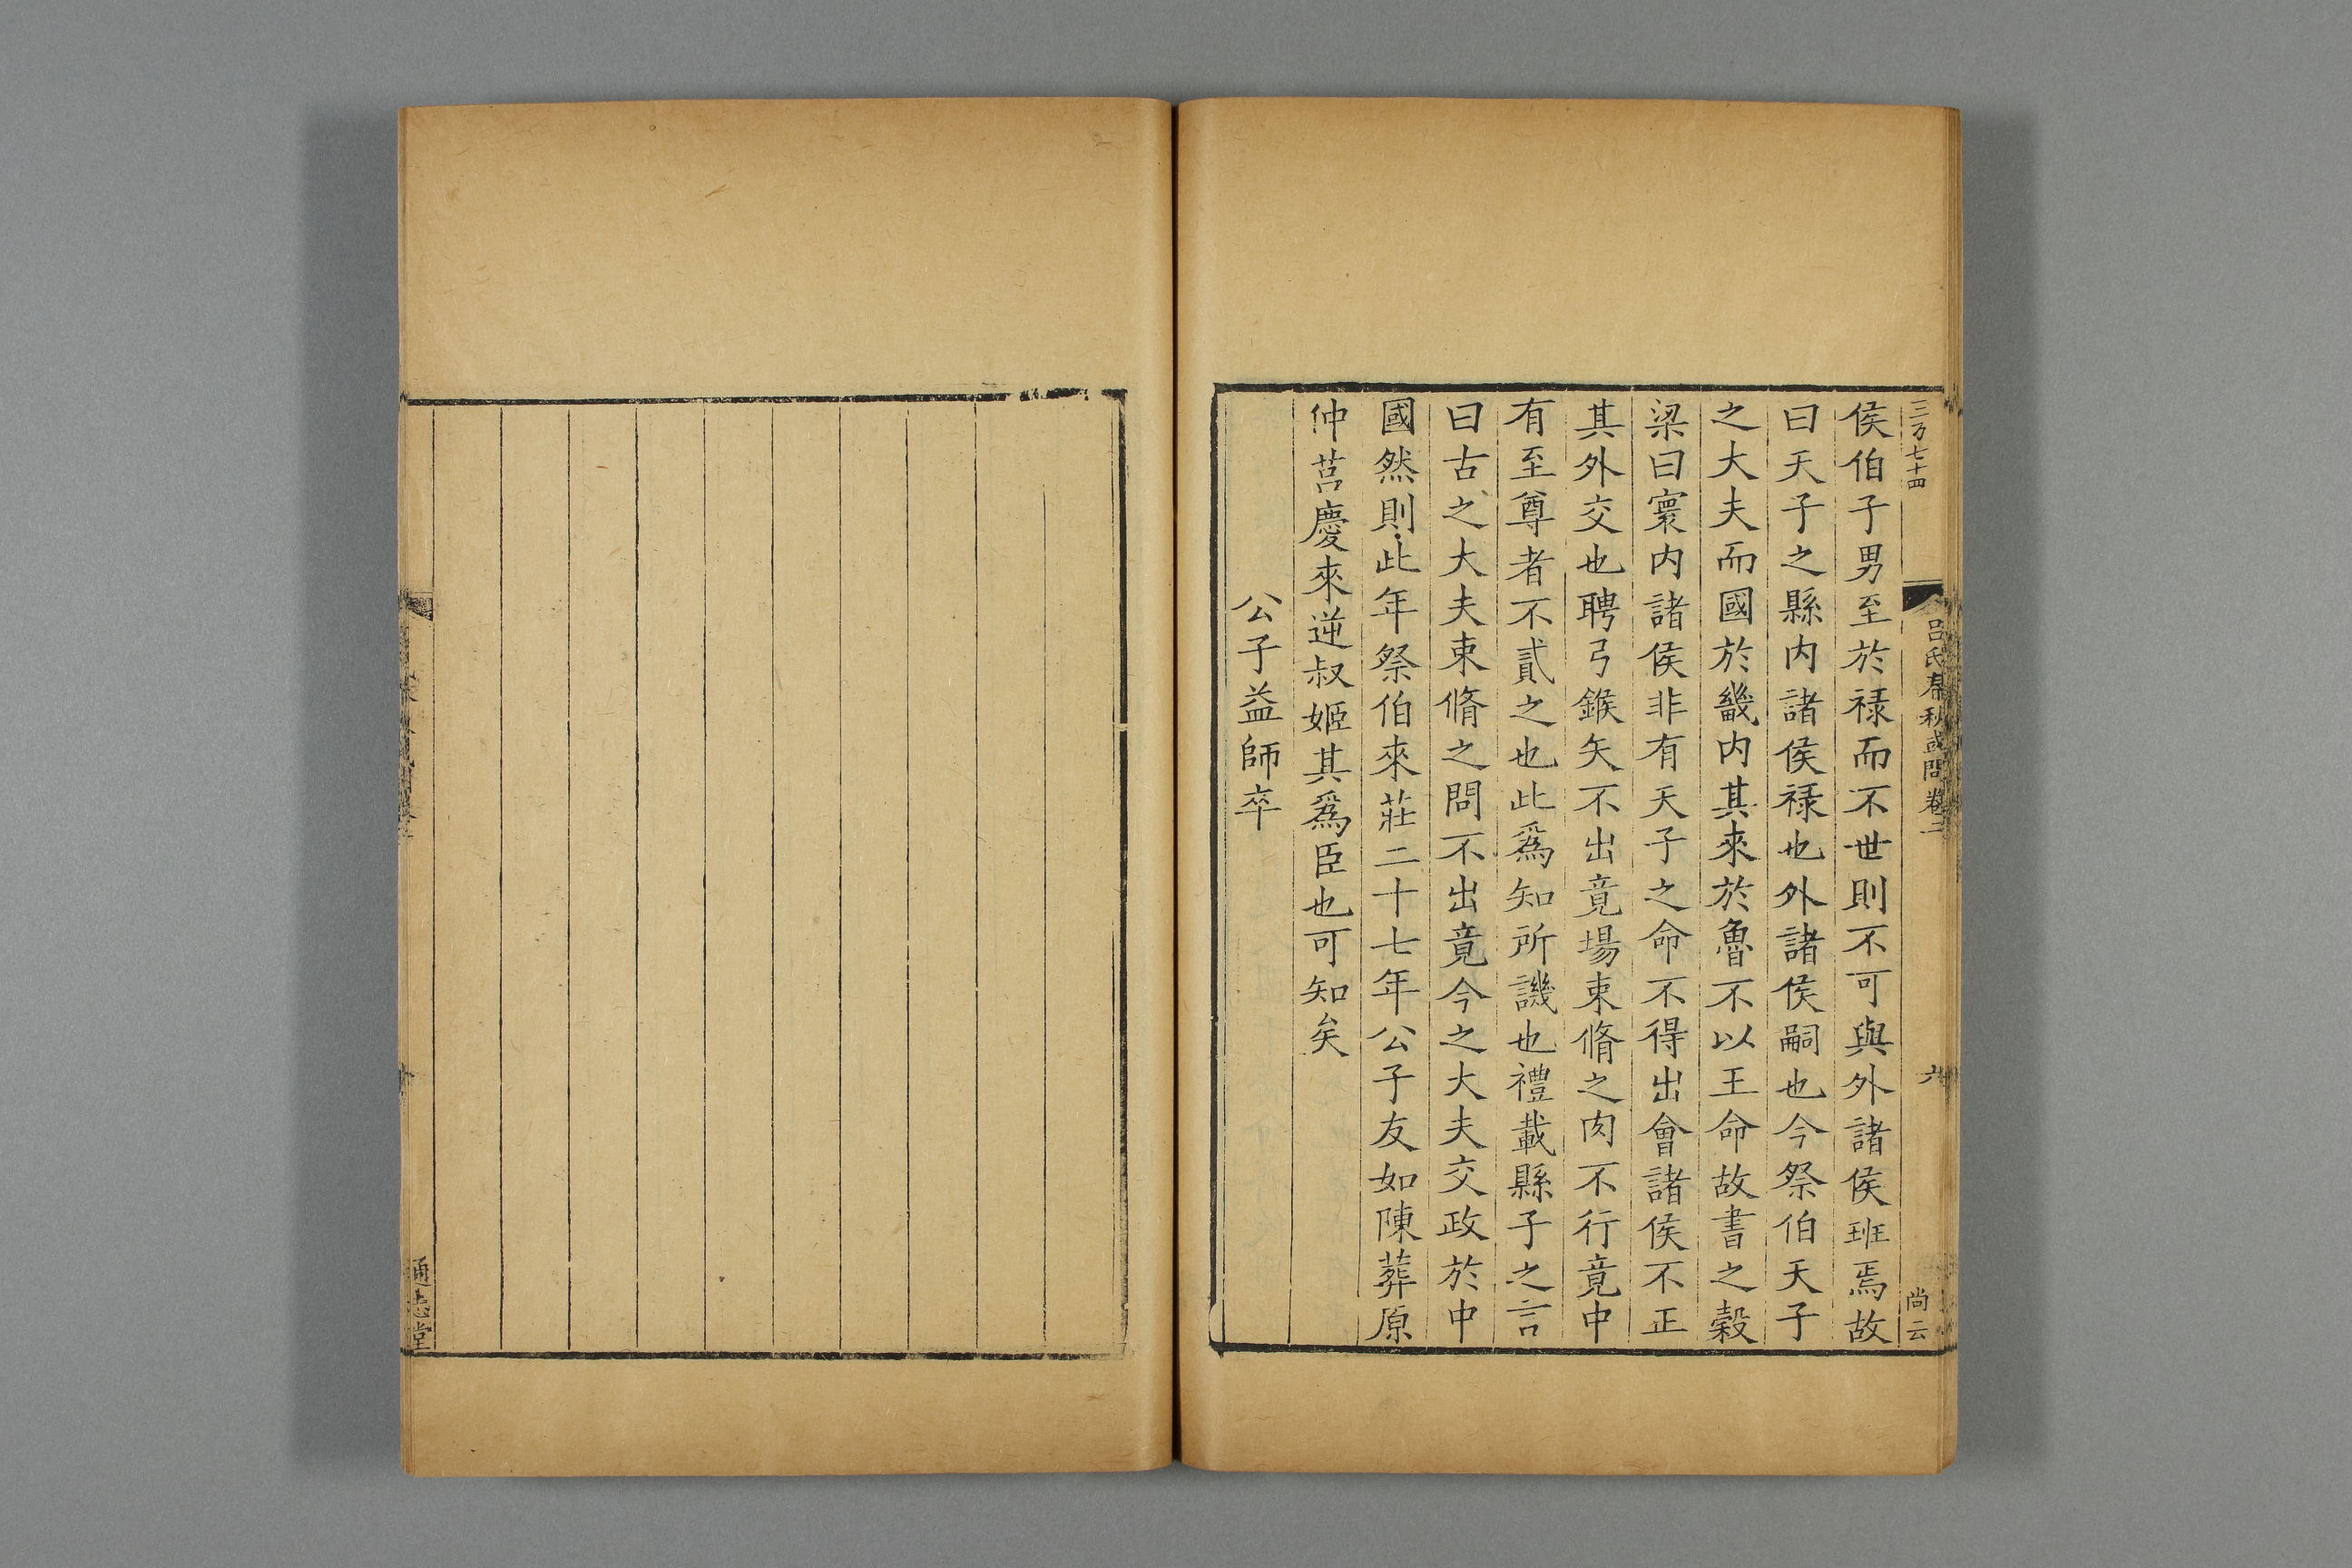 三万七十四
吕氏春秋或問卷二
六
尚云
侯伯子男至於祿而不世則不可與外諸侯班焉故
曰天子之縣内諸侯祿也外諸侯嗣也今祭伯天子
之大夫而國於畿内其來於魯不以王命故書之穀
梁曰寰内諸侯非有天子之命不得出會諸侯不正
其外交也聘弓鍭矢不出竟場束脩之肉不行竟中
有至尊者不貳之也此爲知所譏也禮載縣子之言
曰古之大夫束脩之問不出竟今之大夫交政於中
國然則此年祭伯來莊二十七年公子友如陳葬原
仲莒慶來逆叔姬其爲臣也可知矣
公子益師卒
通志堂